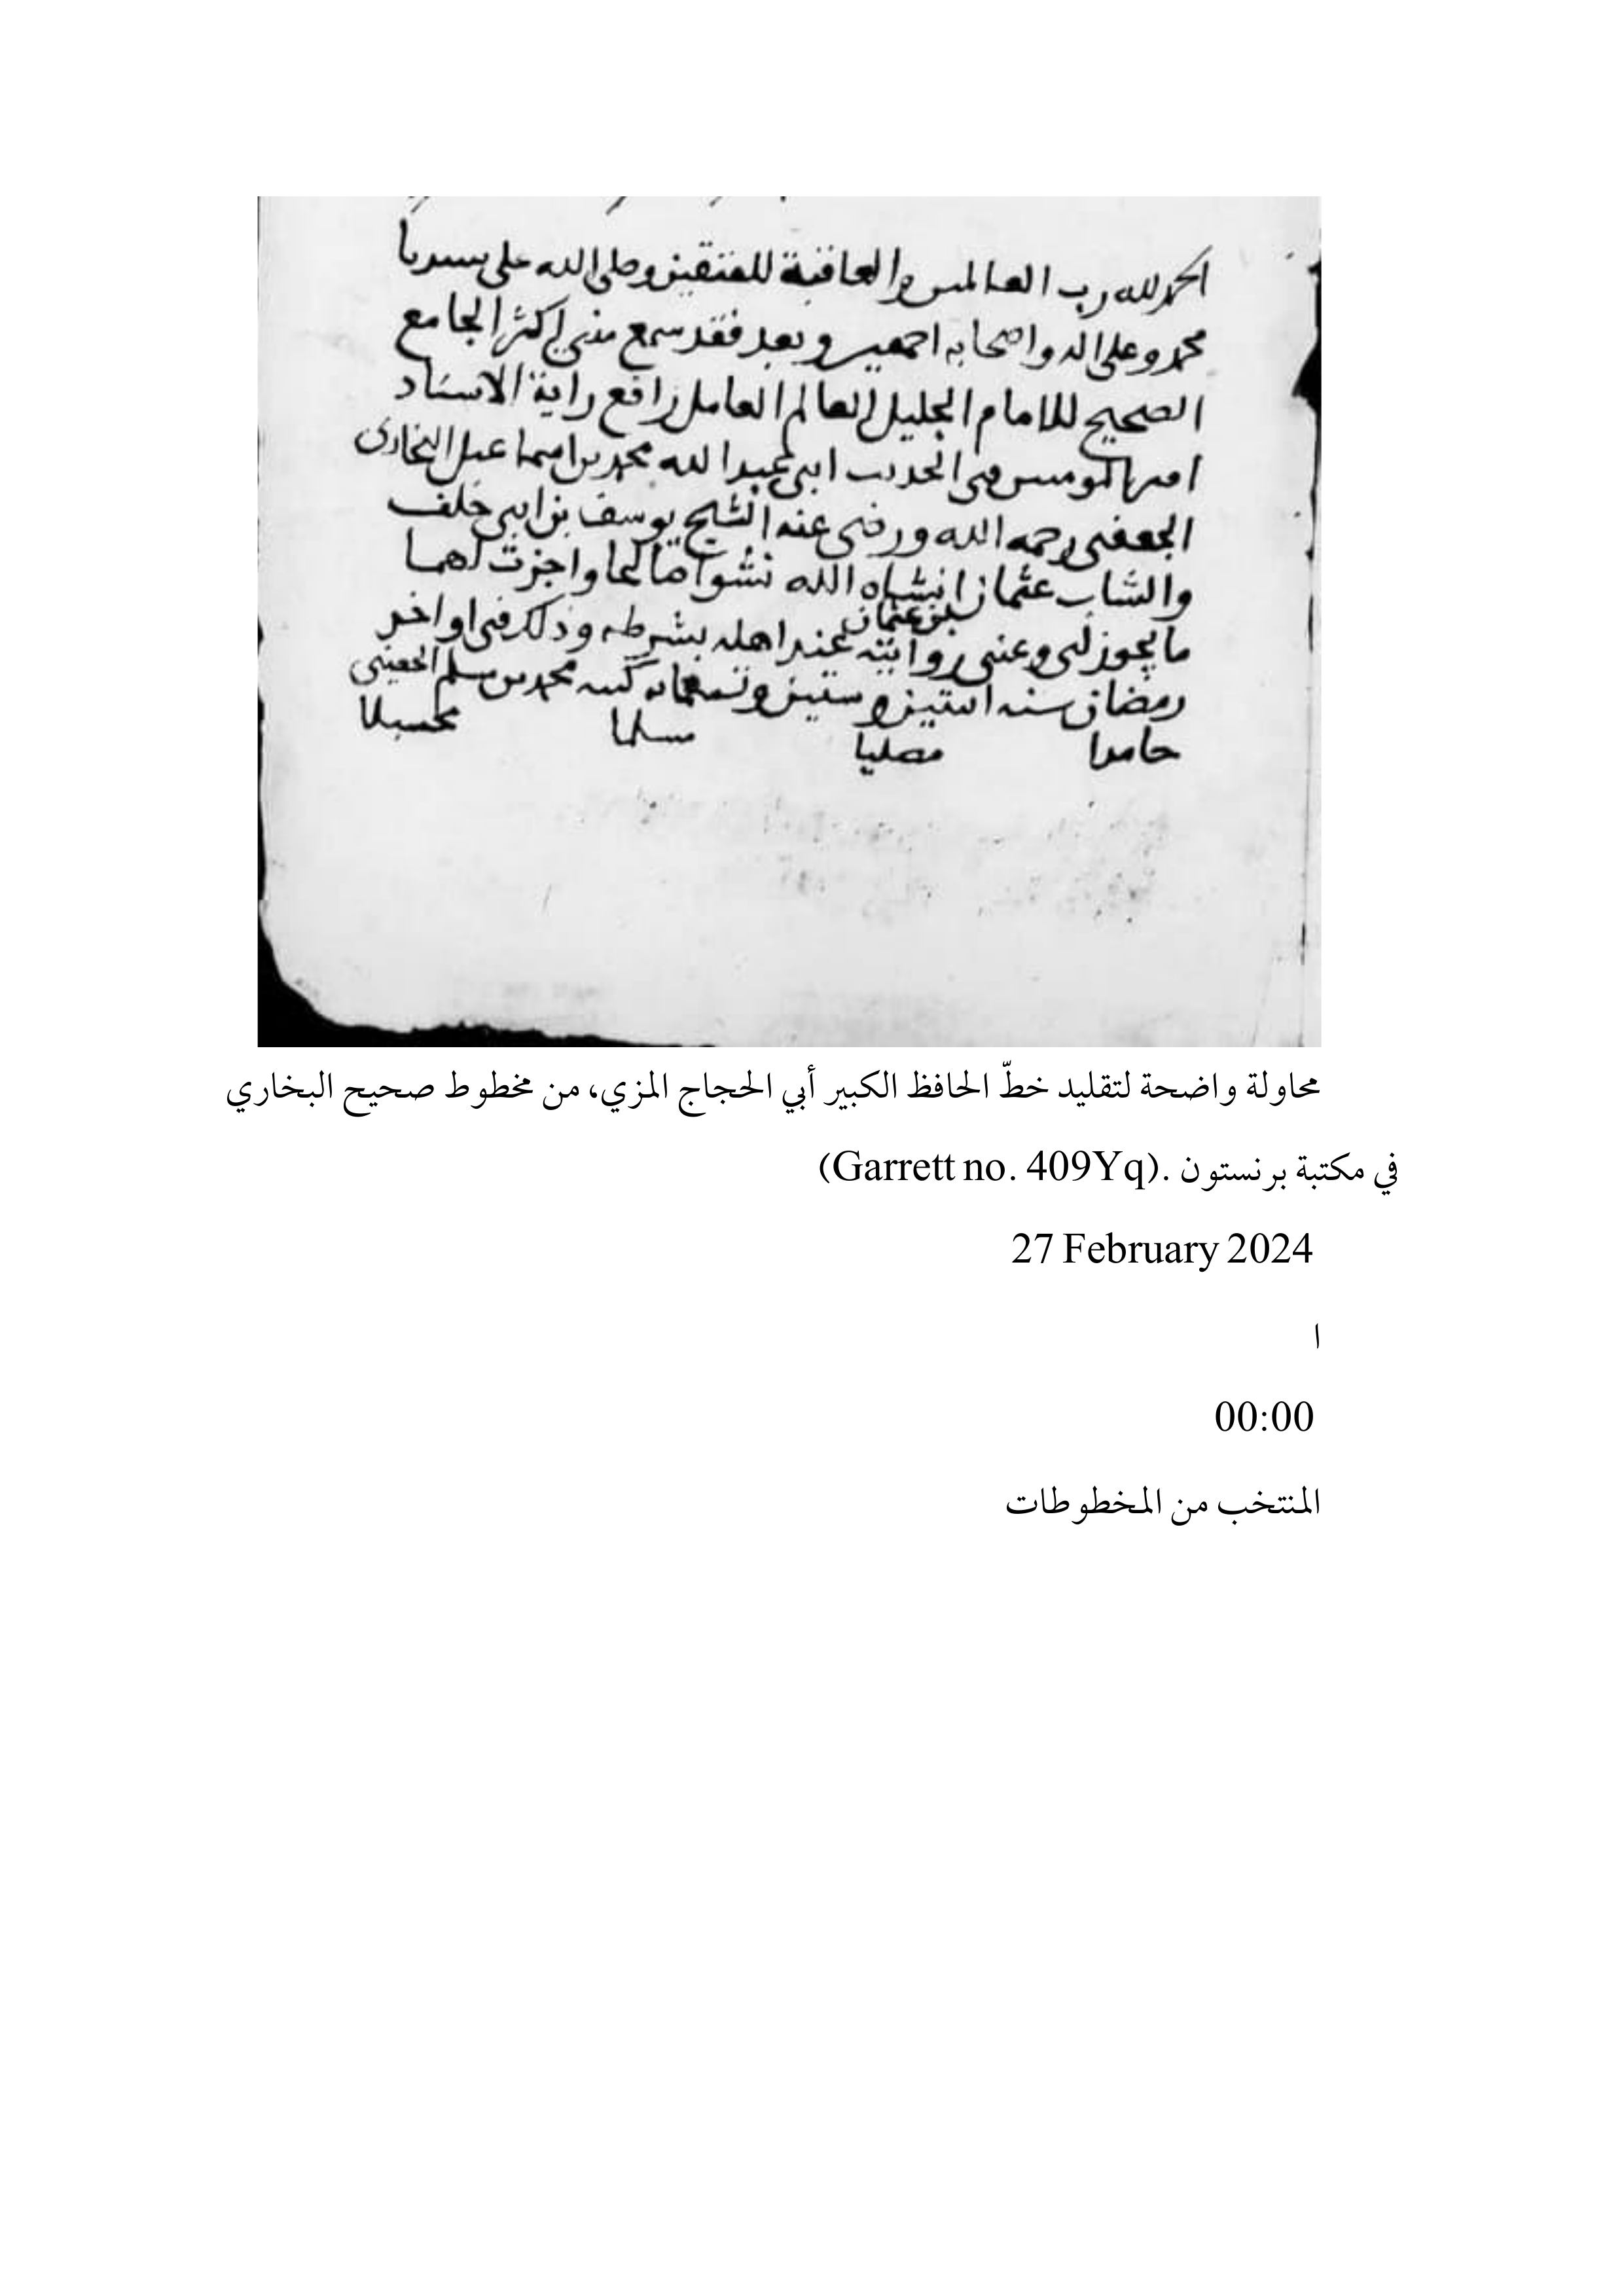 الحمد لله رب العالمين والعاقبة للمتقين وصلى الله على سيدنا
محمد وعلى اله واصحابه اجمعين وبعد فقد سمع منى اكثر الجامع
الصحيح للامام الجليل العالم العامل رافع راية الاسناد
امير المومنين فى الحديث ابى عبد الله محمد بن اسماعيل البخارى
الجعفى رحمه الله ورضى عنه الشيخ يوسف بن ابى خلف
والشاب عثمان بن عثمان انشاه الله نشوا صالحا واجزت لهما
ما يجوز لى وعنى روايته عند اهله بشرطه وذلك فى اواخر
رمضان سنه اثنتين وستين وتسعمايه كتبه محمد بن مسلم
حامدا مصليا مسلما محسبلا
محاولة واضحة لتقليد خطّ الحافظ الكبير أبي الحجاج المزي، من مخطوط صحيح البخاري
في مكتبة برنستون .(Garrett no. 409Yq)
27 February 2024
ا
00:00
المنتخب من المخطوطات